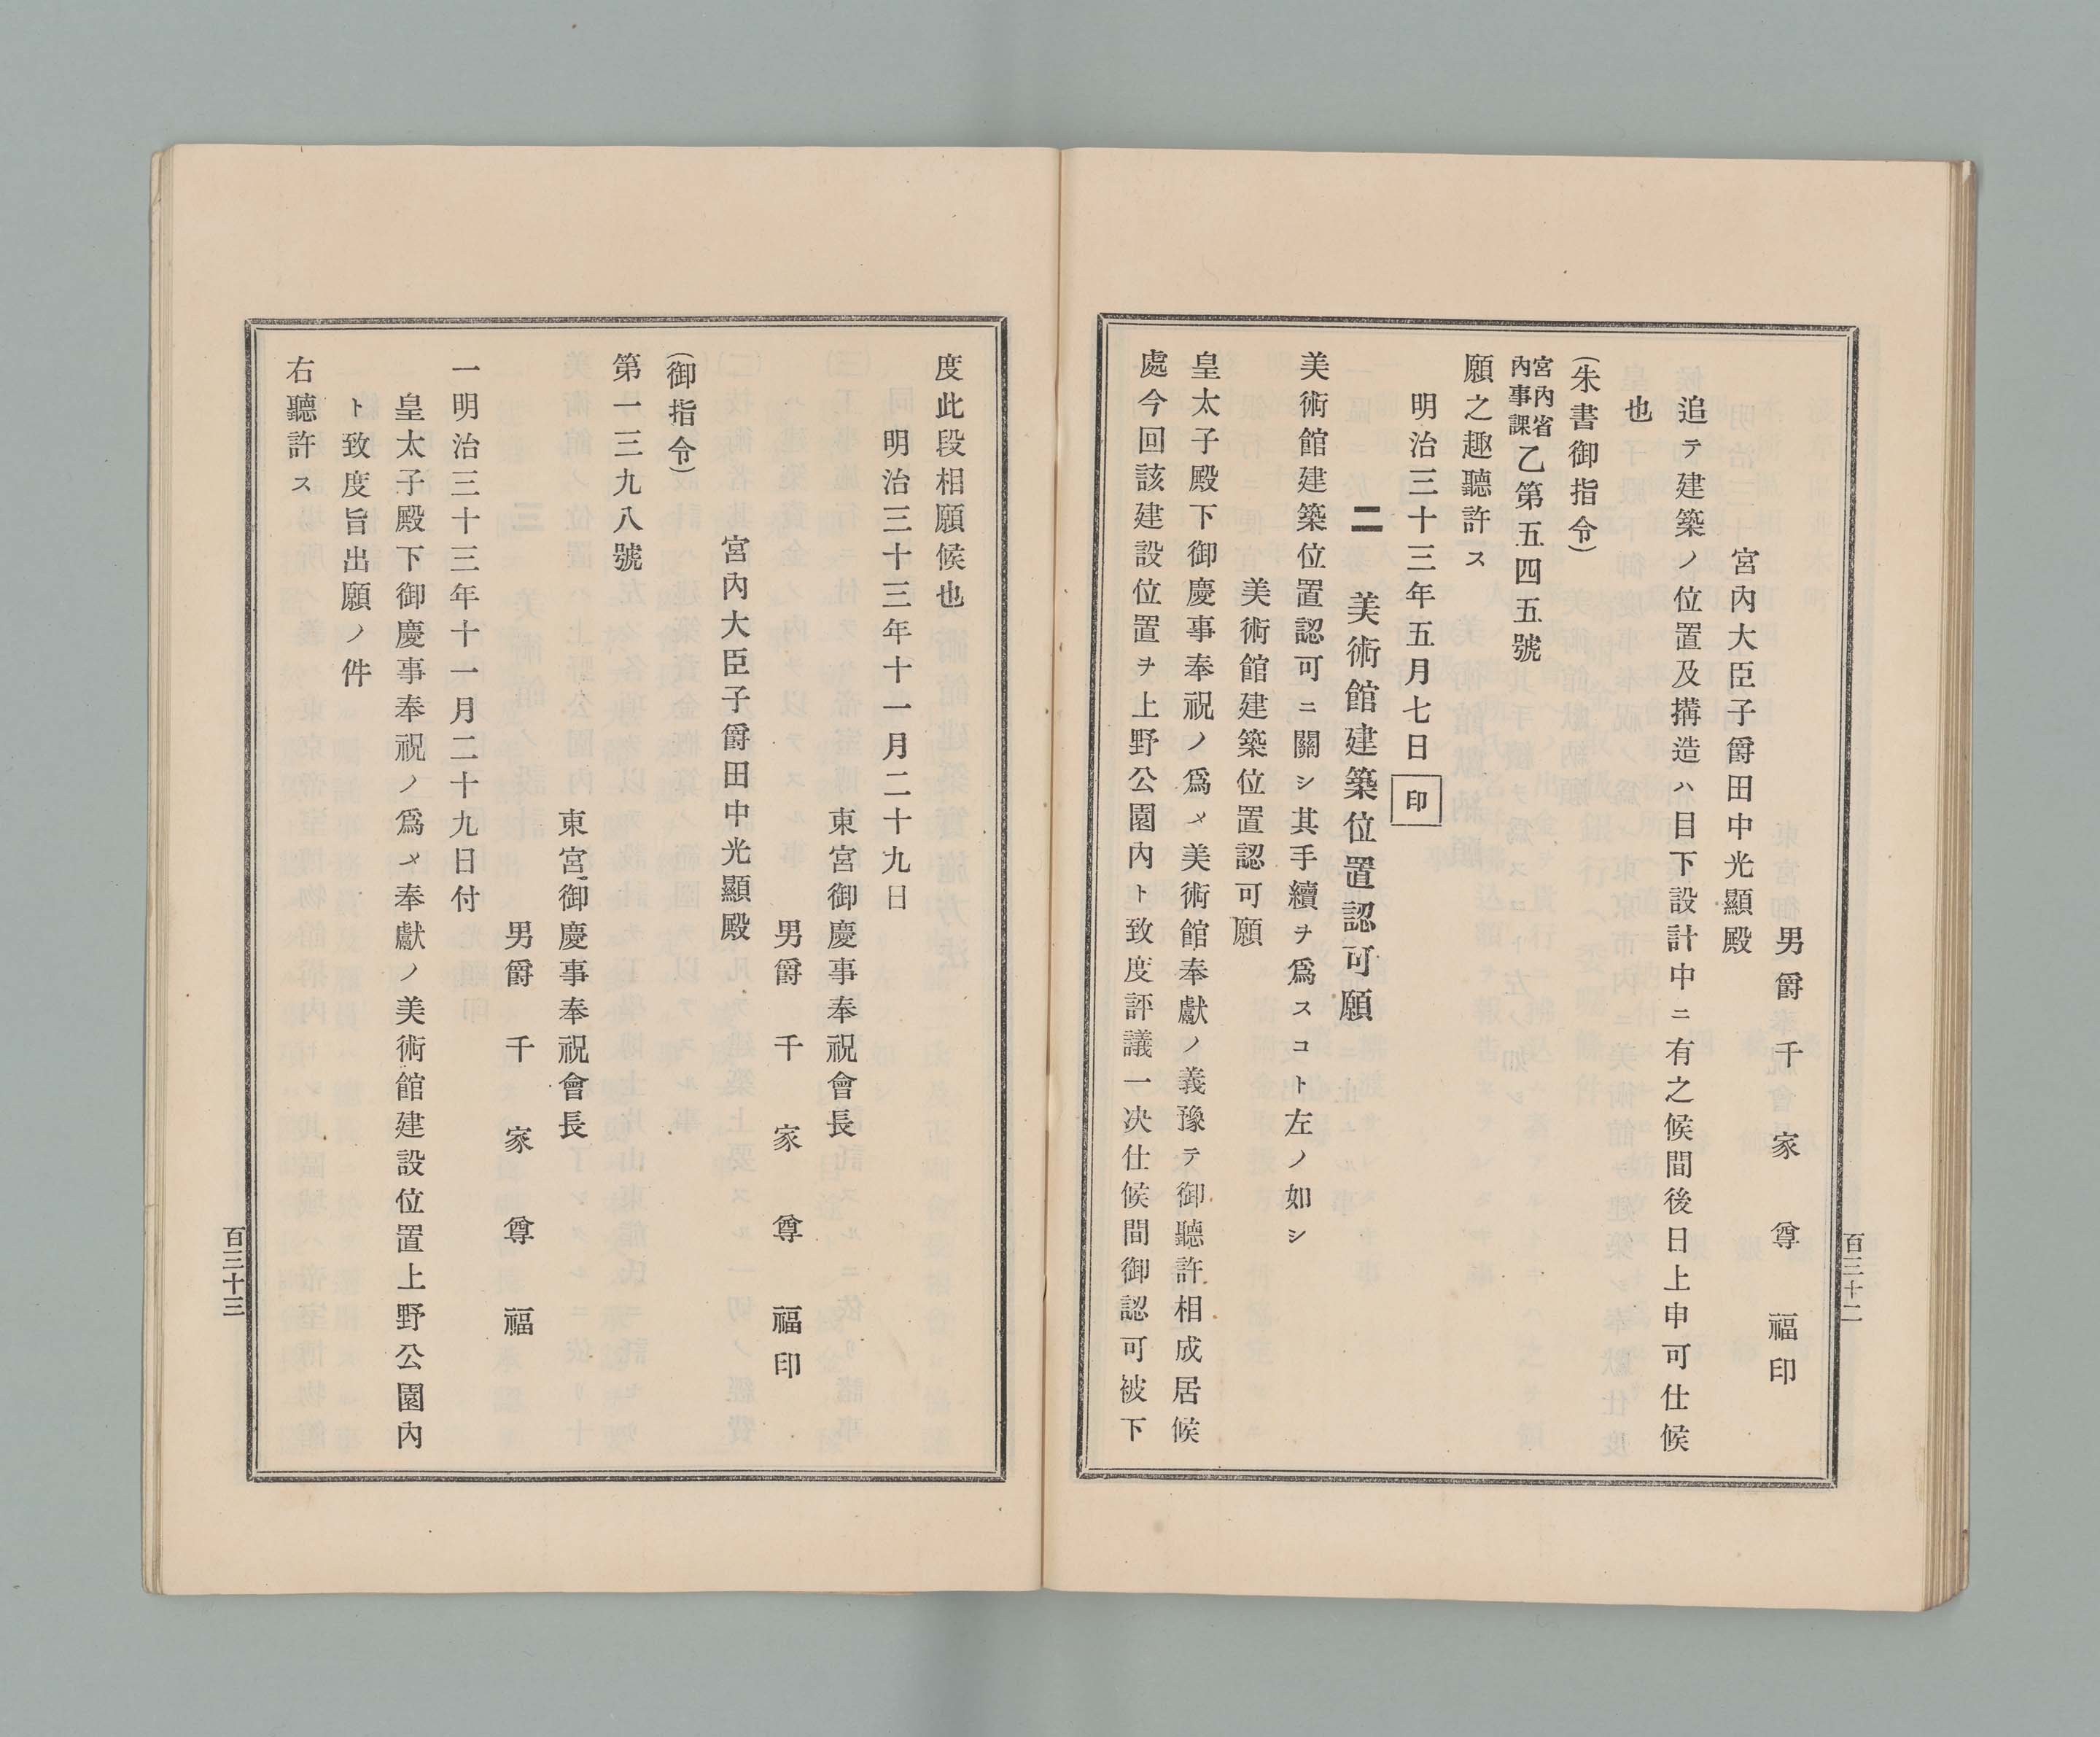 男爵　千　家　尊　福印
宮內大臣子爵田中光顯殿
追テ建築ノ位置及搆造ハ目下設計中ニ有之候間後日上申可仕候
也
（朱書御指令）
宮內省
內事課
乙第五四五號
願之趣聽許ス
明治三十三年五月七日
印
二　美術館建築位置認可願
美術館建築位置認可ニ關シ其手續ヲ爲スコト左ノ如シ
美術館建築位置認可願
皇太子殿下御慶事奉祝ノ爲メ美術館奉獻ノ義豫テ御聽許相成居候
處今回該建設位置ヲ上野公園內ト致度評議一决仕候間御認可被下
百三十二
度此段相願候也
明治三十三年十一月二十九日
東宮御慶事奉祝會長
男爵　千　家　尊　福印
宮內大臣子爵田中光顯殿
（御指令）
第一三九八號
東宮御慶事奉祝會長
男爵　千　家　尊　福
一明治三十三年十一月二十九日付
皇太子殿下御慶事奉祝ノ爲メ奉獻ノ美術館建設位置上野公園內
ト致度旨出願ノ件
右聽許ス
百三十三